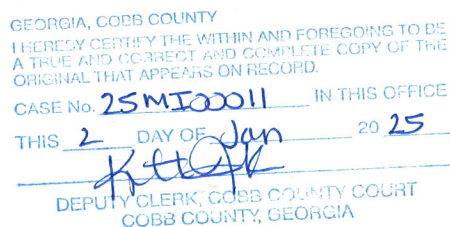 GEORGIA, COBB COUNTY
I HEREBY CERTIFY THE WITHIN AND FOREGOING TO BE
A TRUE AND CORRECT AND COMPLETE COPY OF THE
ORIGINAL THAT APPEARS ON RECORD.
CASE No. 25MI00011 IN THIS OFFICE
THIS 2 DAY OF Jan 20 25
DEPUTY CLERK, COBB COUNTY COURT
COBB COUNTY, GEORGIA